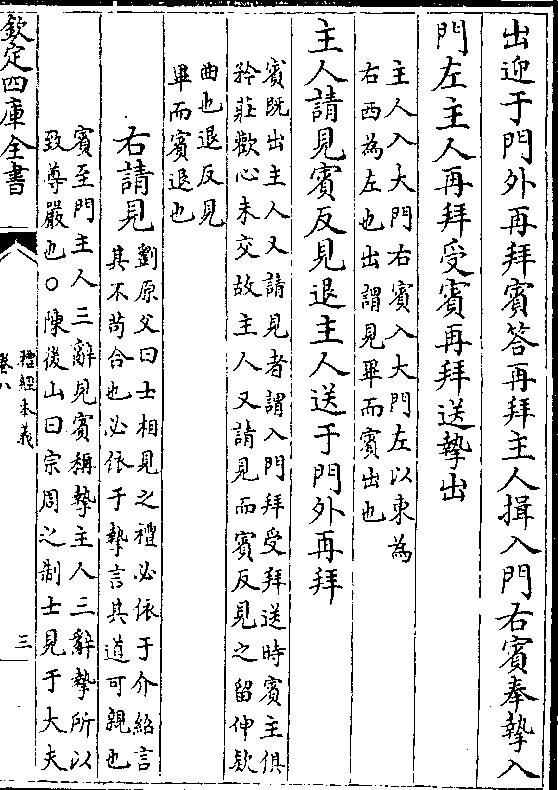 出迎于門外再拜賓答再拜主人揖入門右賓奉摯入
門左主人再拜受賓再拜送摯出
主人入大門右賓入大門左以東為
右西為左也出謂見畢而賓出也
主人請見賓反見退主人送于門外再拜
賓既出主人又請見者謂入門拜受拜送時賓主俱
矜莊歡心未交故主人又請見而賓反見之留伸欵
曲也退反見
畢而賓退也
右請見
劉原父曰士相見之禮必依于介紹言
其不苟合也必依于摯言其道可親也
賓至門主人三辭見賓稱摯主人三辭摯所以
致尊嚴也○陳後山曰宗周之制士見于大夫
欽定四庫全書
禮經本義
卷八
三